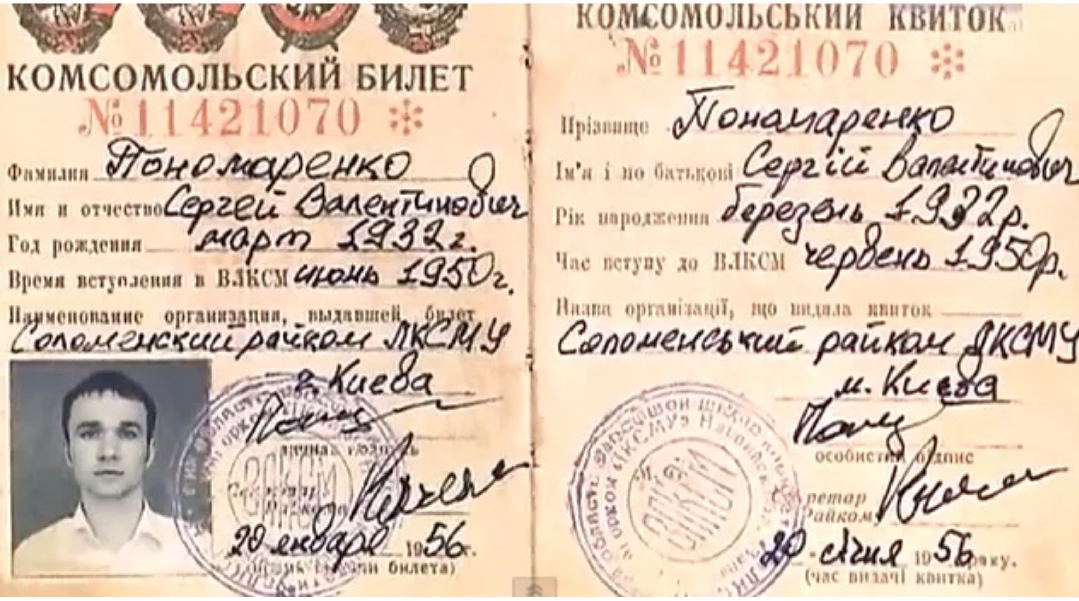 КОМСОМОЛЬСКИЙ БИЛЕТ
№11421070
Фамилия Пономаренко
Имя и отчество Сергей Валентинович
Год рождения март 1932 г.
Время вступления в ВЛКСМ июнь 1950 г.
Наименование организации, выдавшей билет
Соломенский райком ЛКСМУ
г. Киева
личная подпись
ВЛКСМ
20 января 1956 г.
КОМСОМОЛЬСЬКИЙ КВИТОК
№11421070
Прізвище Пономаренко
Ім'я і по батькові Сергій Валентинович
Рік народження березень 1932 р.
Час вступу до ВЛКСМ червень 1950 р.
Назва організації, що видала квиток
Соломенський райком ЛКСМУ
м. Києва
особистий підпис
ВЛКСМ
Райкому
20 січня 1956 року.
(час видачі квитка)